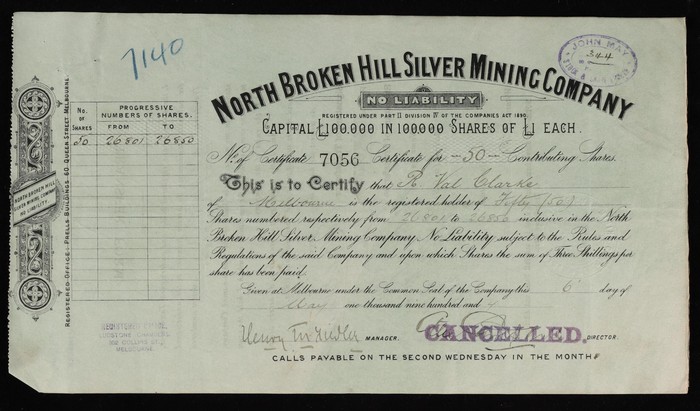 7140
JOHN MAY
344
NORTH BROKEN HILL SILVER MINING COMPANY
NO LIABILITY
REGISTERED UNDER PART II DIVISION IV OF THE COMPANIES ACT 1890.
CAPITAL £100.000 IN 100.000 SHARES OF £1 EACH.
No. OF SHARES
PROGRESSIVE NUMBERS OF SHARES.
FROM TO
50 26801 26850
No. of Certificate 7056 Certificate for -50- Contributing Shares.
This is to Certify that R. Val Clarke
of Melbourne is the registered holder of Fifty (50)
Shares numbered respectively from 26801 to 26850 inclusive in the North
Broken Hill Silver Mining Company No Liability subject to the Rules and
Regulations of the said Company and upon which Shares the sum of Three Shillings per
share has been paid.
Given at Melbourne under the Common Seal of the Company this 6 day of
May one thousand nine hundred and
MANAGER.
CANCELLED.
DIRECTOR.
CALLS PAYABLE ON THE SECOND WEDNESDAY IN THE MONTH
NORTH BROKEN HILL
SILVER MINING COMPANY
NO LIABILITY.
REGISTERED OFFICE - PRELLS BUILDINGS 60 QUEEN STREET MELBOURNE.
MELBOURNE